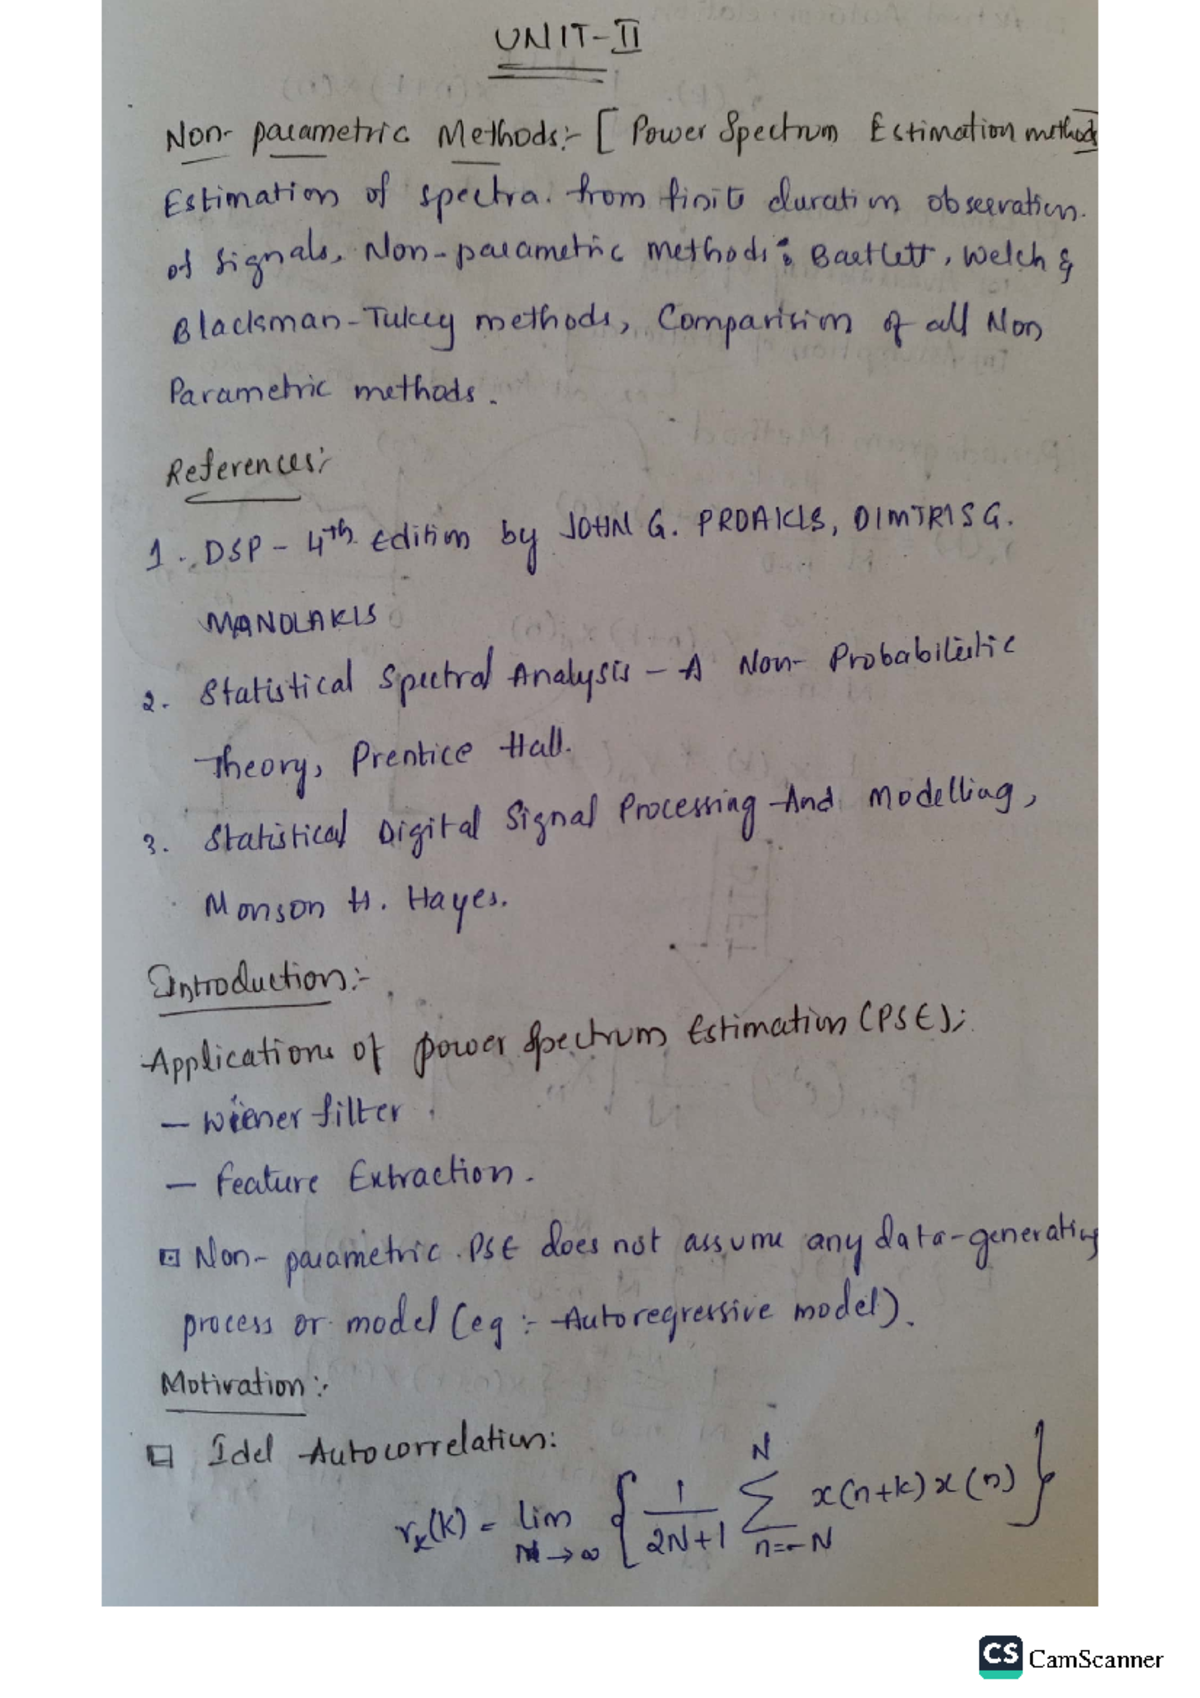 UNIT-II
Non-parametric Methods:- [Power Spectrum Estimation methods]
Estimation of spectra. from finite duration observation.
of signals, Non-parametric methods: Bartlett, Welch &
Blackman-Tukey methods, Comparision of all Non
Parametric methods.
References:
1. DSP - 4th edition by JOHN G. PROAKIS, DIMTRIS G.
MANOLAKIS
2. Statistical Spectral Analysis - A Non-Probabilistic
Theory, Prentice Hall.
3. Statistical Digital Signal Processing And Modelling,
Monson H. Hayes.
Introduction:-
Applications of power Spectrum Estimation (PSE):
- Wiener filter
- Feature Extraction.
⊡ Non-parametric. PSE does not assume any data-generating
process or model (eg :- Autoregressive model).
Motivation:-
□ Idel Autocorrelation:
r_x(k) = lim_{N→∞} { 1/(2N+1) Σ_{n=-N}^{N} x(n+k) x(n) }
CS CamScanner